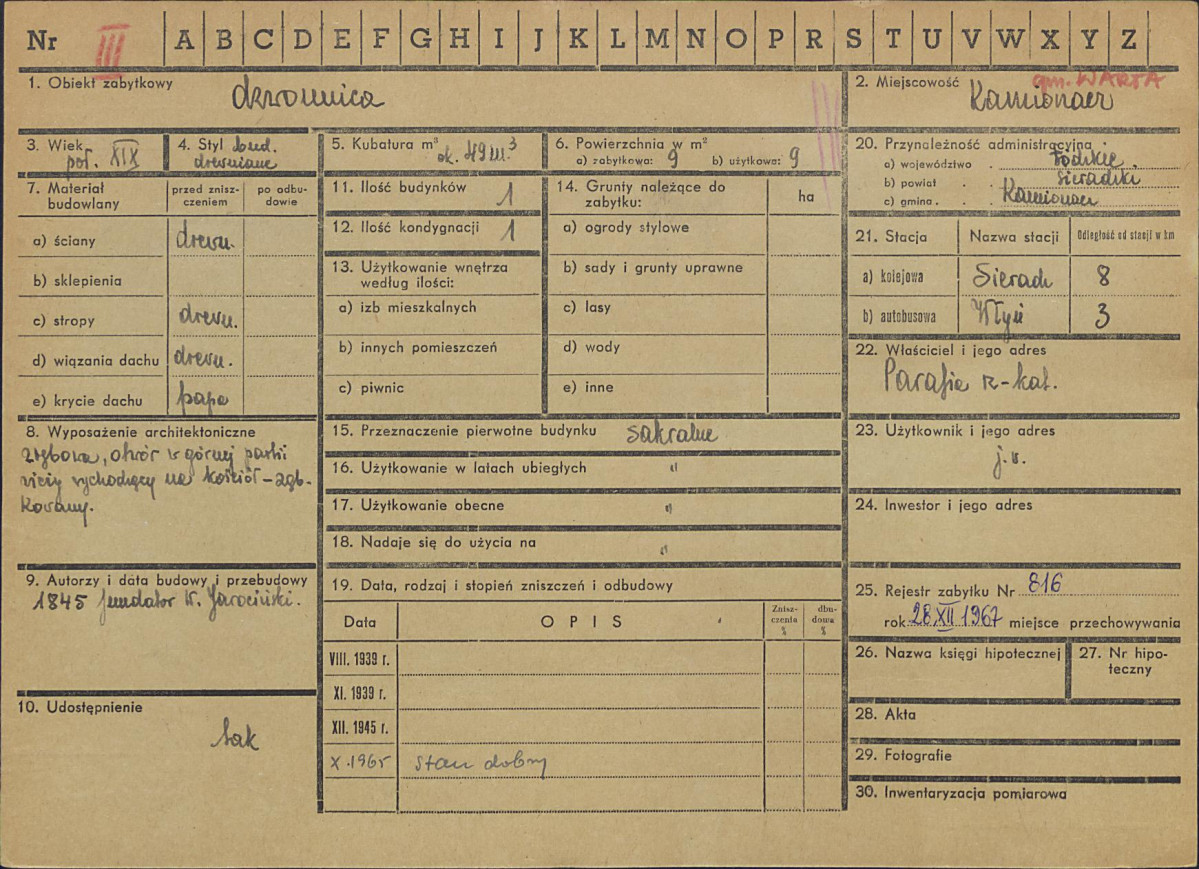 Nr III A B C D E F G H I J K L M N O P R S T U V W X Y Z
1. Obiekt zabytkowy dzwonnica
2. Miejscowość gm. WARTA
Kamionacz
3. Wiek poł. XIX
4. Styl bud.
drewniane
5. Kubatura m³ ok. 49 m.³
6. Powierzchnia w m²
a) zabytkowa: 9 b) użytkowa: 9
7. Materiał budowlany
przed zniszczeniem
po odbudowie
a) ściany drewn.
b) sklepienia
c) stropy drewn.
d) wiązania dachu drewn.
e) krycie dachu papa
8. Wyposażenie architektoniczne
zrębowa, otwór w górnej partii
wieży wychodzący na kościół – ząb-
kowany.
9. Autorzy i data budowy i przebudowy
1845 fundator W. Jarociński.
10. Udostępnienie
tak
11. Ilość budynków 1
12. Ilość kondygnacji 1
13. Użytkowanie wnętrza
według ilości:
a) izb mieszkalnych
b) innych pomieszczeń
c) piwnic
14. Grunty należące do
zabytku:
ha
a) ogrody stylowe
b) sady i grunty uprawne
c) lasy
d) wody
e) inne
15. Przeznaczenie pierwotne budynku sakralne
16. Użytkowanie w latach ubiegłych "
17. Użytkowanie obecne "
18. Nadaje się do użycia na "
19. Data, rodzaj i stopień zniszczeń i odbudowy
Data OPIS Znisz-czenia % dbu-dowa %
VIII. 1939 r.
XI. 1939 r.
XII. 1945 r.
X. 1965 stan dobry
20. Przynależność administracyjna
a) województwo Łódzkie
b) powiat Sieradzki
c) gmina Kamionacz
21. Stacja Nazwa stacji Odległość od stacji w km
a) kolejowa Sieradz 8
b) autobusowa Włyń 3
22. Właściciel i jego adres
Parafia rz-kat.
23. Użytkownik i jego adres
j.w.
24. Inwestor i jego adres
25. Rejestr zabytku Nr 816
rok 28 XII 1967 miejsce przechowywania
26. Nazwa księgi hipotecznej
27. Nr hipo-
teczny
28. Akta
29. Fotografie
30. Inwentaryzacja pomiarowa